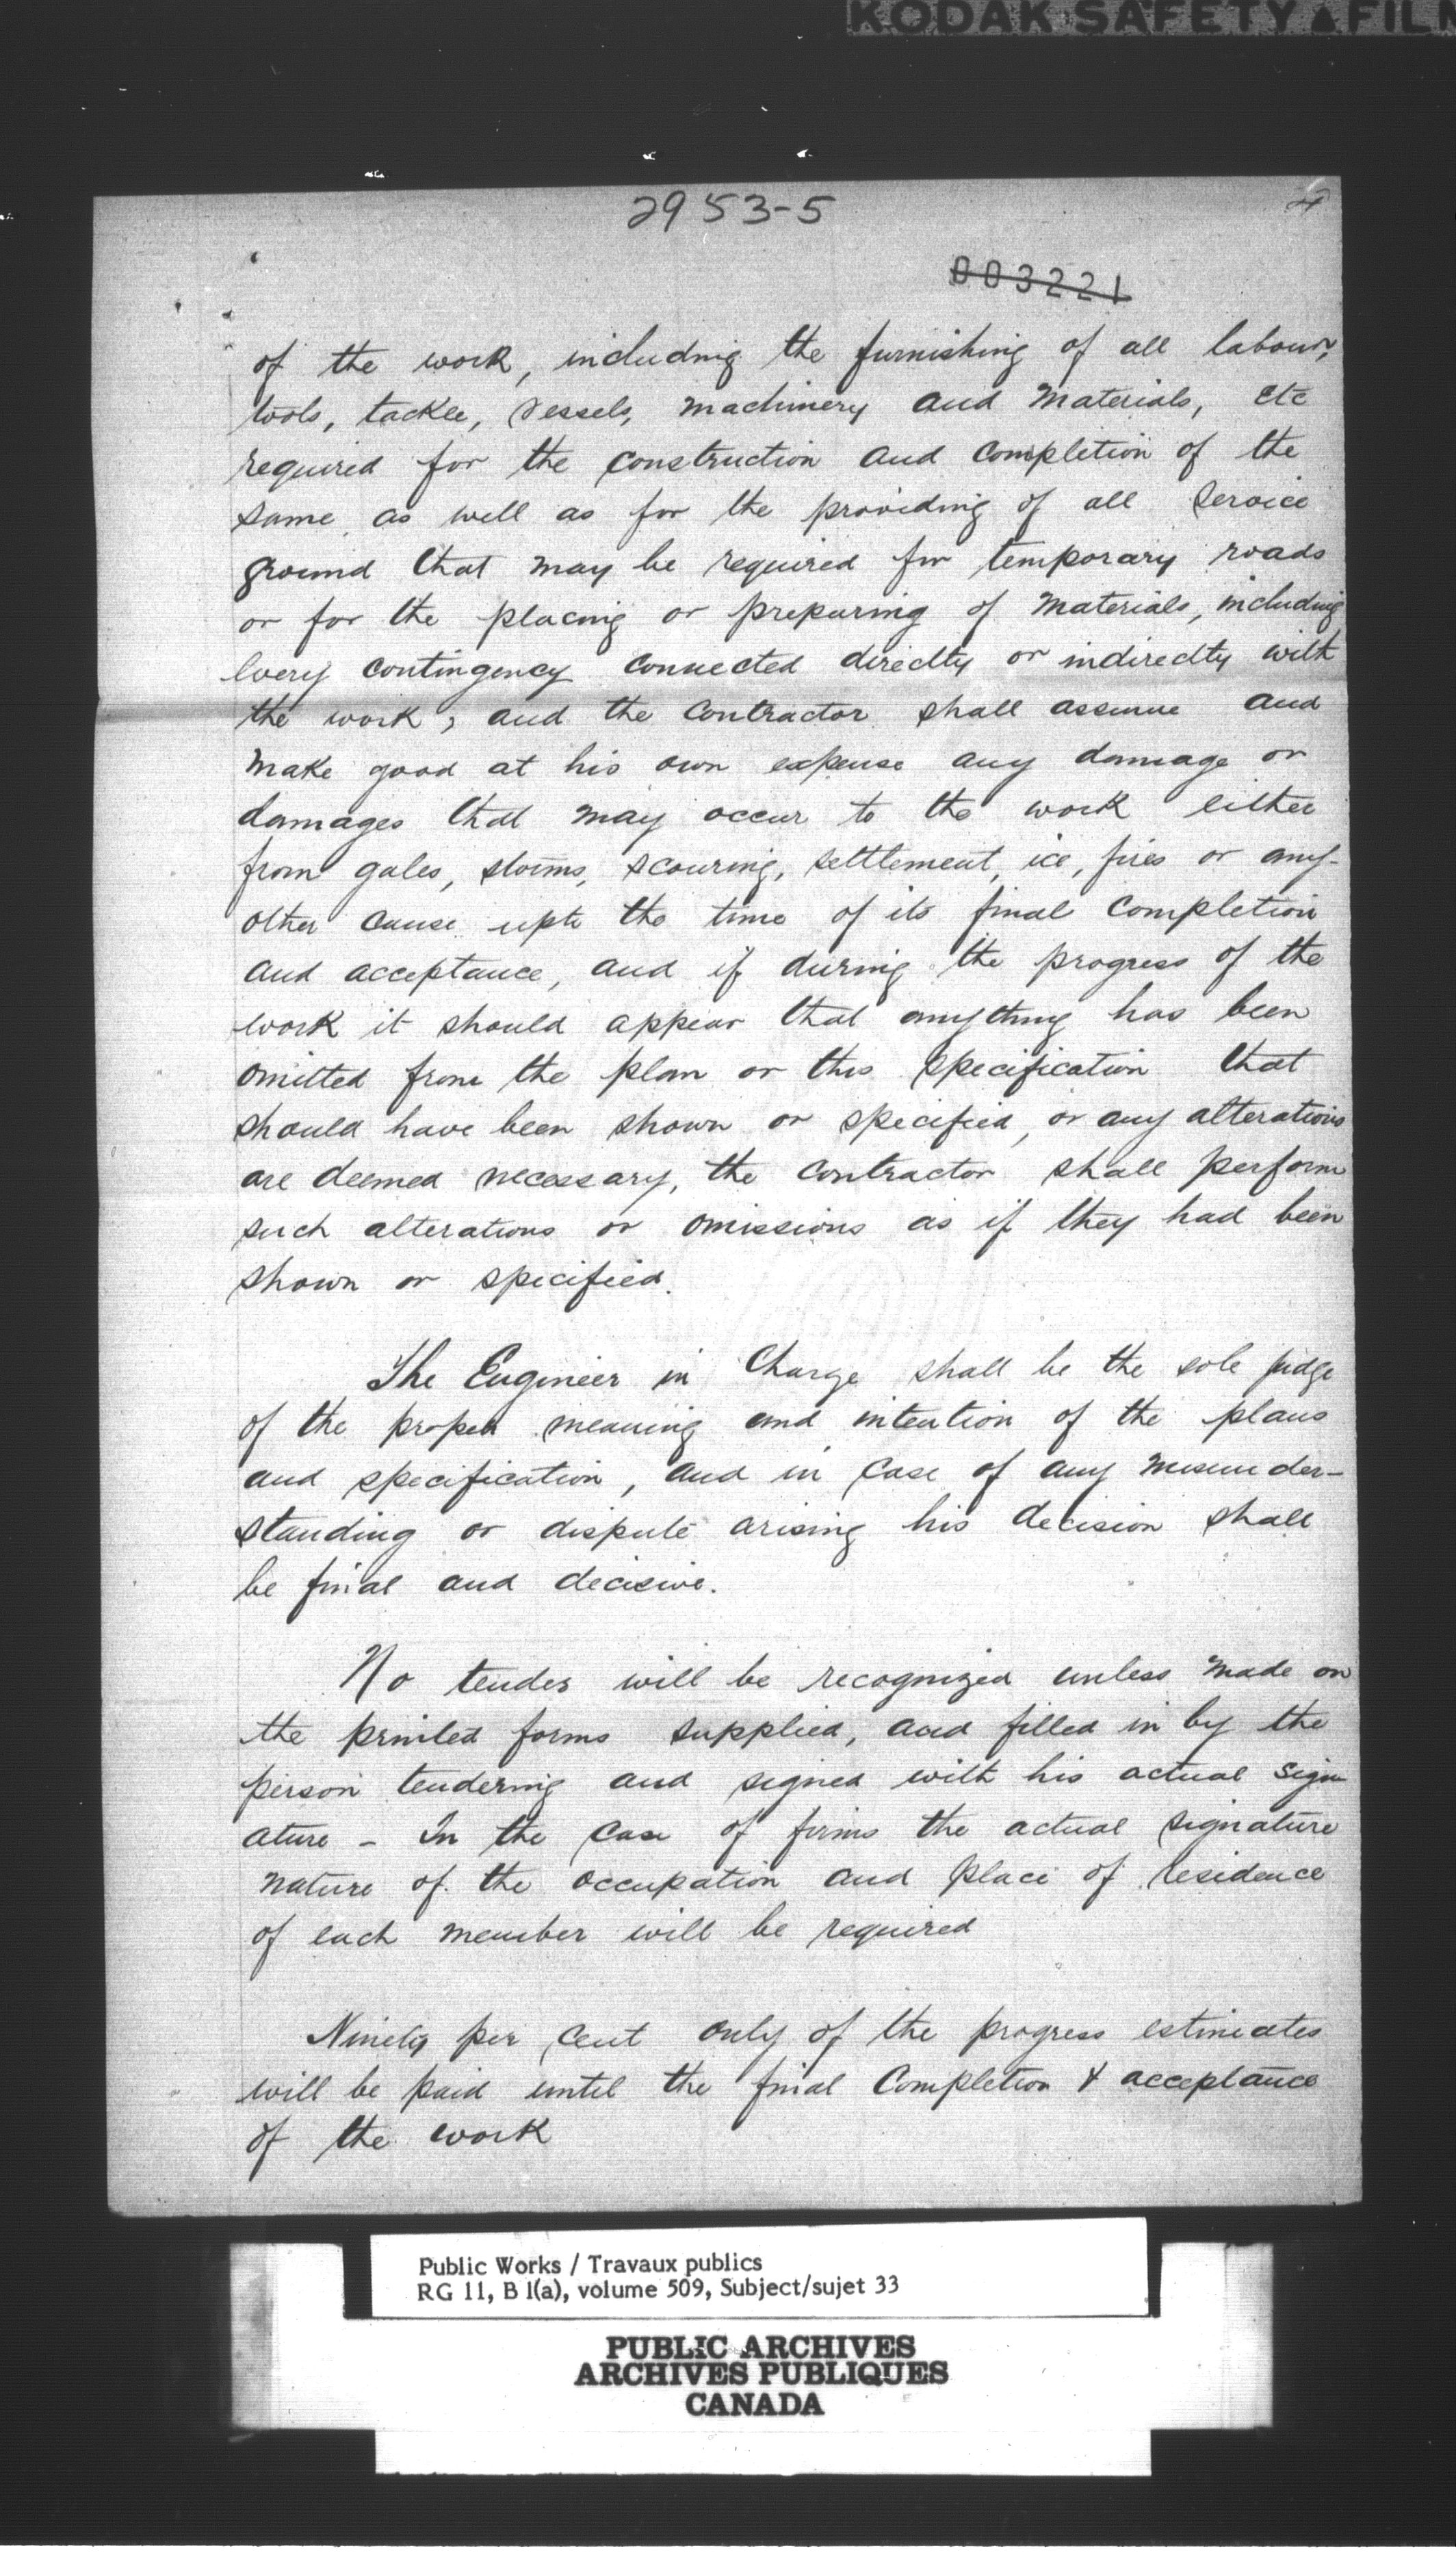 KODAK SAFETY FILM
2953-5
003221
of the work, including the furnishing of all labour,
tools, tackle, vessels, machinery and materials, etc
required for the construction and completion of the
same, as well as for the providing of all service
ground that may be required for temporary roads
or for the placing or preparing of materials, including
every contingency connected directly or indirectly with
the work; and the contractor shall assume and
make good at his own expense any damage or
damages that may occur to the work either
from gales, storms, scouring, settlement, ice, fires or any-
other cause upto the time of its final completion
and acceptance, and if during the progress of the
work it should appear that anything has been
omitted from the plan or this specification that
should have been shown or specified, or any alterations
are deemed necessary, the contractor shall perform
such alterations or omissions as if they had been
shown or specified.
The Engineer in Charge shall be the sole judge
of the proper meaning and intention of the plans
and specification, and in case of any misunder-
standing or dispute arising his decision shall
be final and decisive.
No tender will be recognized unless made on
the printed forms supplied, and filled in by the
person tendering and signed with his actual sign
ature - In the case of firms the actual signature
nature of the occupation and place of residence
of each member will be required
Ninety per cent only of the progress estimates
will be paid until the final completion & acceptance
of the work
Public Works / Travaux publics
RG 11, B 1(a), volume 509, Subject/sujet 33
PUBLIC ARCHIVES
ARCHIVES PUBLIQUES
CANADA